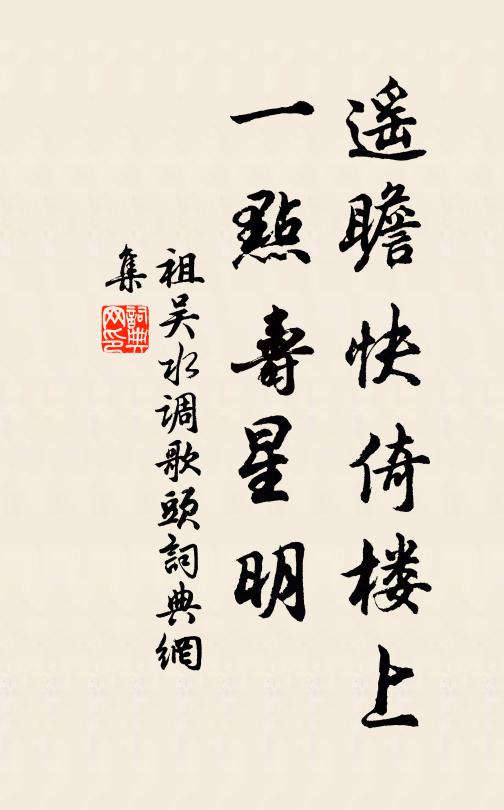 遥瞻快倚楼上
一點壽星明
祖吴水调歌頭詞典網
集
詞典
网印